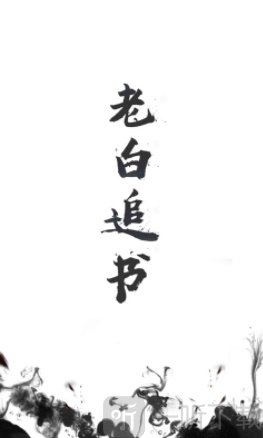 老白追书
听下载